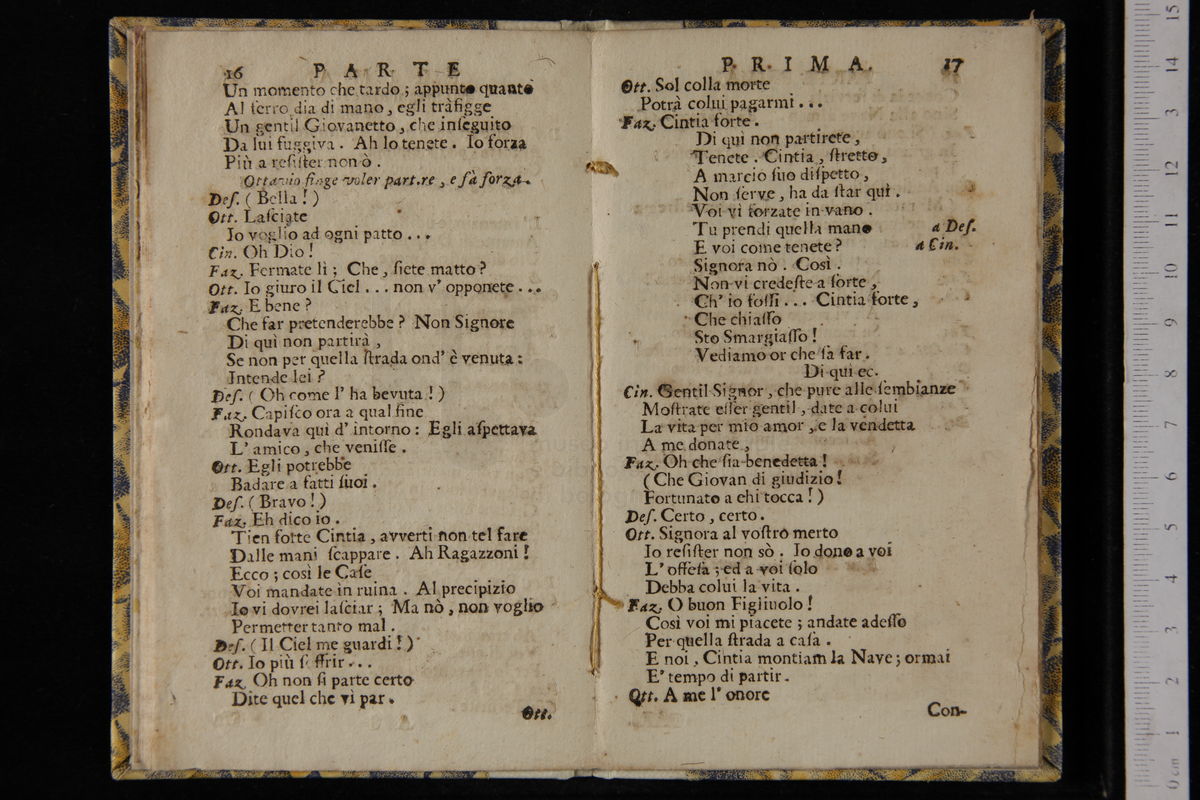 16 PARTE
Un momento che tardo ; appunto quanto
Al ferro dia di mano , egli trafigge
Un gentil Giovanetto , che inſeguito
Da lui fuggiva . Ah lo tenete . Io forza
Più a reſiſter non ò .
Ottavio finge voler part.re , e fà forza .
Deſ. ( Bella ! )
Ott. Laſciate
Io voglio ad ogni patto . . .
Cin. Oh Dio !
Faz. Fermate lì ; Che , ſiete matto ?
Ott. Io giuro il Ciel . . . non v' opponete . . .
Faz. E bene ?
Che far pretenderebbe ? Non Signore
Di quì non partirà ,
Se non per quella ſtrada ond' è venuta :
Intende lei ?
Deſ. ( Oh come l' ha bevuta ! )
Faz. Capiſco ora a qual fine
Rondava quì d' intorno : Egli aſpettava
L' amico , che veniſſe .
Ott. Egli potrebbe
Badare a fatti ſuoi .
Deſ. ( Bravo ! )
Faz. Eh dico io .
Tien forte Cintia , avverti non tel fare
Dalle mani ſcappare . Ah Ragazzoni !
Ecco ; così le Caſe
Voi mandate in ruina . Al precipizio
Io vi dovrei laſciar ; Ma nò , non voglio
Permetter tanto mal .
Deſ. ( Il Ciel me guardi ! )
Ott. Io più ſ ffrir . . .
Faz. Oh non ſi parte certo
Dite quel che vi par .
Ott.
PRIMA. 17
Ott. Sol colla morte
Potrà colui pagarmi . . .
Faz. Cintia forte .
Di quì non partirete ,
Tenete . Cintia , ſtretto ,
A marcio ſuo diſpetto ,
Non ſerve , ha da ſtar quì .
Voi vi forzate in vano .
Tu prendi quella mano a Deſ.
E voi come tenete ? a Cin.
Signora nò . Così .
Non vi credeſte a ſorte ,
Ch' io foſſi . . . Cintia forte ,
Che chiaſſo
Sto Smargiaſſo !
Vediamo or che ſà far .
Di quì ec.
Cin. Gentil Signor , che pure alle ſembianze
Moſtrate eſſer gentil , date a colui
La vita per mio amor , e la vendetta
A me donate ,
Faz. Oh che ſia benedetta !
( Che Giovan di giudizio !
Fortunato a chi tocca ! )
Deſ. Certo , certo .
Ott. Signora al voſtro merto
Io reſiſter non sò . Io dono a voi
L' offeſa ; ed a voi ſolo
Debba colui la vita .
Faz. O buon Figliuolo !
Così voi mi piacete ; andate adeſſo
Per quella ſtrada a caſa .
E noi , Cintia montiam la Nave ; ormai
E' tempo di partir .
Ott. A me l' onore
Con-
0 cm 1 2 3 4 5 6 7 8 9 10 11 12 13 14 15